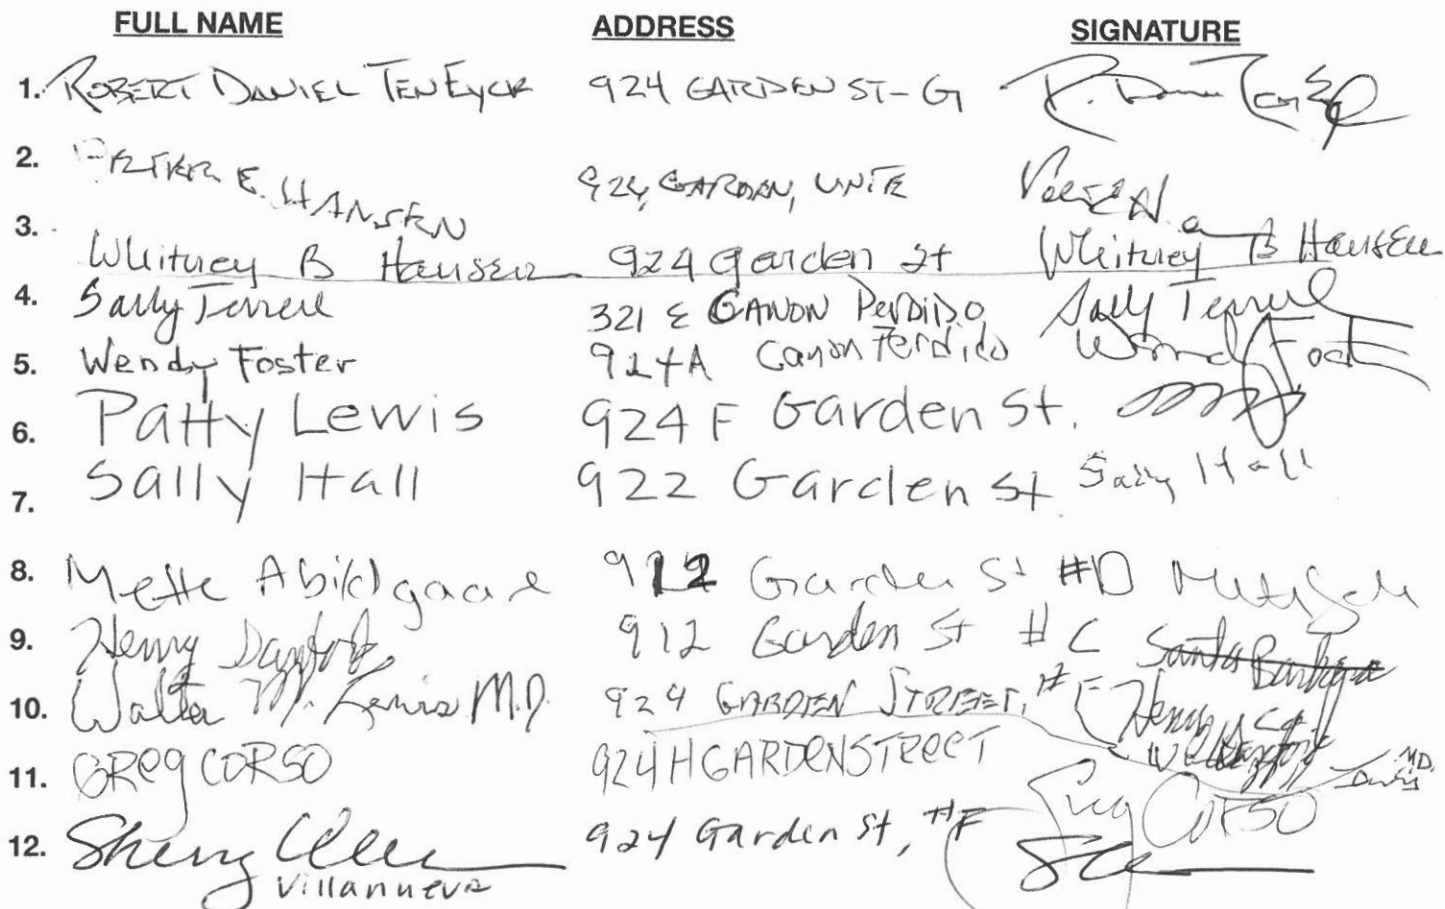 FULL NAME ADDRESS SIGNATURE
1. ROBERT DANIEL TEN EYCK 924 GARDEN ST-G
2. PETER E. HANSEN 924 GARDEN, UNIT E
3. Whitney B Hansen 924 garden st Whitney B Hansen
4. Sally Terrell 321 E CANON PERDIDO Sally Terrell
5. Wendy Foster 924A Canon Perdido
6. Patty Lewis 924 F Garden St.
7. Sally Hall 922 Garden St Sally Hall
8. Mette Abildgaard 912 Garden St #D
9. Henry 912 Garden St # C Santa Barbara
10. Walter M. Lewis M.D. 924 GARDEN STREET, # F Henry
11. GReg CORSO 924 H GARDEN STReeT Greg CORSO
12. Sherry Villanueva 924 Garden St, #F